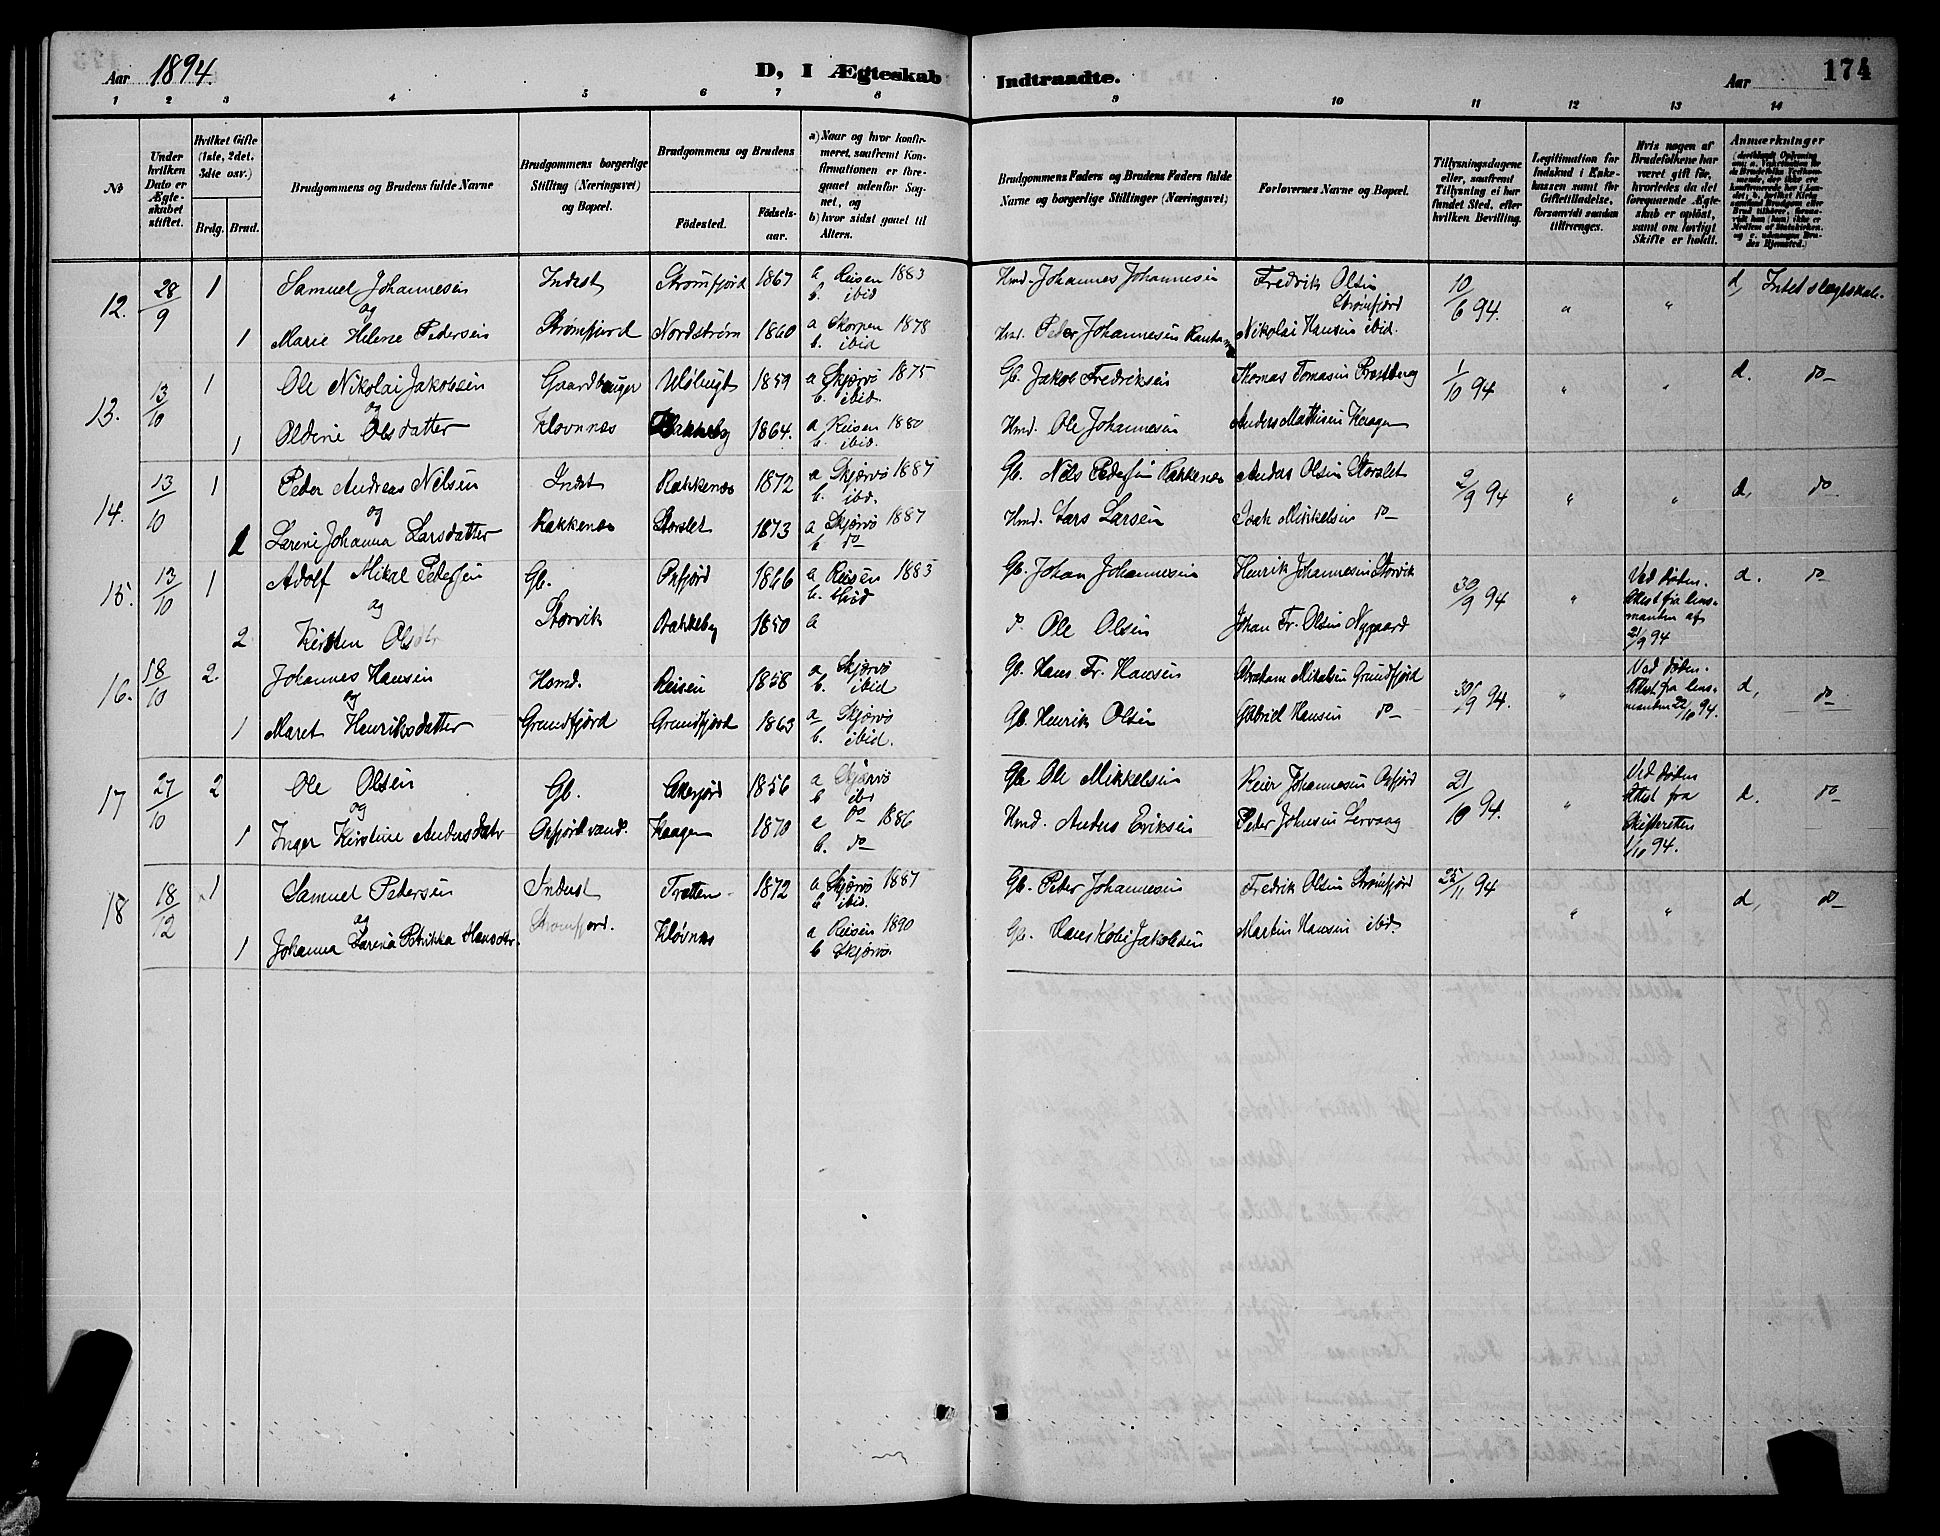 Aar 1894.
D, I Ægteskab Indtraadte.
Aar 174
1 2 3 4 5 6 7 8 9 10 11 12 13 14
No
Under hvilken Dato er Ægteskabet stiftet.
Hvilket Gifte (1ste, 2det, 3die osv.)
Brdg. Brud.
Brudgommens og Brudens fulde Navne
Brudgommens borgerlige Stilling (Næringsvei) og Bopæl.
Brudgommens og Brudens
Fødested. Fødselsaar.
a) Naar og hvor konfirmeret, saafremt Konfirmationen er foregaaet udenfor Sognet, og
b) hvor sidst gaaet til Alters.
Brudgommens Faders og Brudens Faders fulde Navne og borgerlige Stillinger (Næringsvei)
Forlovernes Navne og Bopæl.
Tillysningsdagene eller, saafremt Tillysning ei har fundet Sted, efter hvilken Bevilling.
Legitimation for Indskud i Enkekassen samt for Giftetilladelse, forsaavidt saadan tiltrænges.
Hvis nogen af Brudefolkene har været gift før, hvorledes da det foregaaende Ægteskab er opløst, samt om lovligt Skifte er holdt.
Anmærkninger
12. 28/9 1 Samuel Johannesen Indest Strømfjord 1867 a Reisen 1883 b. ibid Hmd. Johannes Johannesen Fredrik Olsen Strømfjord 10/6 94. " " d, Intet slegtskab.
og
1 Marie Helene Pedersen Strømfjord Nordstrøm 1860 a Skorpen 1878 b. ibid Hmd. Peder Johannesen Nikolai Hansen ibid.
13. 13/10 1 Ole Nikolai Jakobsen Gaardbruger Uløbugt 1859 a Skjærvø 1875 b. ibid. Gb. Jakob Fredriksen Thomas Tomasen 1/10 94 " " d. do
og
1 Oldine Olsdatter Kløvnnæs Bakkeby 1864. a Reisen 1880 b. ibid. Hmd. Ole Johannesen Anders Mathisen Haagen
14. 13/10 1 Peder Andreas Nilsen Indst Rakkenæs 1872 a Skjærvø 1887 b. ibid. Gb. Nils Pedersen Rakkenæs Anders Olsen Storslet 2/9 94 " " d, do
og
1 Lareni Johanna Larsdatter Rakkenæs Storslet 1873 a Skjærvø 1887 b do Hmd. Lars Larsen Isak Mikkelsen do
15. 13/10 1 Adolf Mikal Petersen Gb. Oxfjord 1866 a Reisen 1883 b. ibid Gb. Johan Johannesen Henrik Johannesen Storvik 30/9 94 " Ved døden. Attest fra lensmanden af 21/9 94 d. do
og
2 Kirsten Olsdtr Storvik Bakkeby 1850 a do Ole Olsen Johan Fr. Olsen Nygaard
16. 18/10 2. Johannes Hansen Husmd. Reisen 1858 a. Skjærvø b. ibid Gb. Hans Fr. Hansen Abraham Mikalsen Grundfjord 30/9 94. " Ved døden. Attest fra lensmanden 22/10 94. d, do
og
1 Maret Henriksdatter Grundfjord Grundfjord 1863 a Skjærvø b. ibid. Gb. Henrik Olsen Gabriel Hansen do
17 27/10 2 Ole Olsen Gb. Okerfjord 1856 a Skjærvø b ibd Gb. Ole Mikkelsen Reier Johannesen Oxfjord 21/10 94. " Ved døden Attest fra Skifteretten 1/10 94. d. do
og
1 Inger Kirstine Andersdatr Oxfjordvand. Haagen 1870 a do 1886 b. do Hmd. Anders Eriksen Peder Johnsen Lervaag
18 18/12 1 Samuel Petersen Inderst Tretten 1872 a Skjærvø 1887 b ibid. Gb. Peter Johannesen Fredrik Olsen Strømfjord 25/11 94 " " d, do
og
1 Johanna Larena Petrikka Hansdtr. Strømfjord. Kløvnæs a Reisen 1890 b Skjærvø. Gb. Hans Jakobsen Martin Hansen ibid.